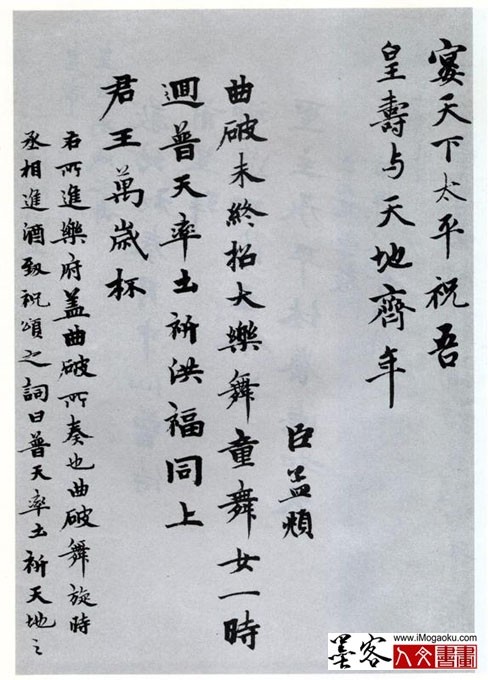 宴天下太平祝吾
皇壽与天地齊年
臣孟頫
曲破未終招大樂舞童舞女一時
迴普天率土祈洪福同上
君王萬歲杯
右所進樂府盖曲破所奏也曲破舞旋時
丞相進酒致祝頌之詞曰普天率土祈天地之
墨客
www.iMogaoku.com
人文書畫